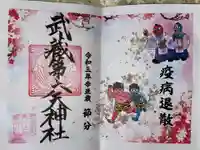 疫病退散
令和三年辛丑歳
節分
武蔵第六天神社